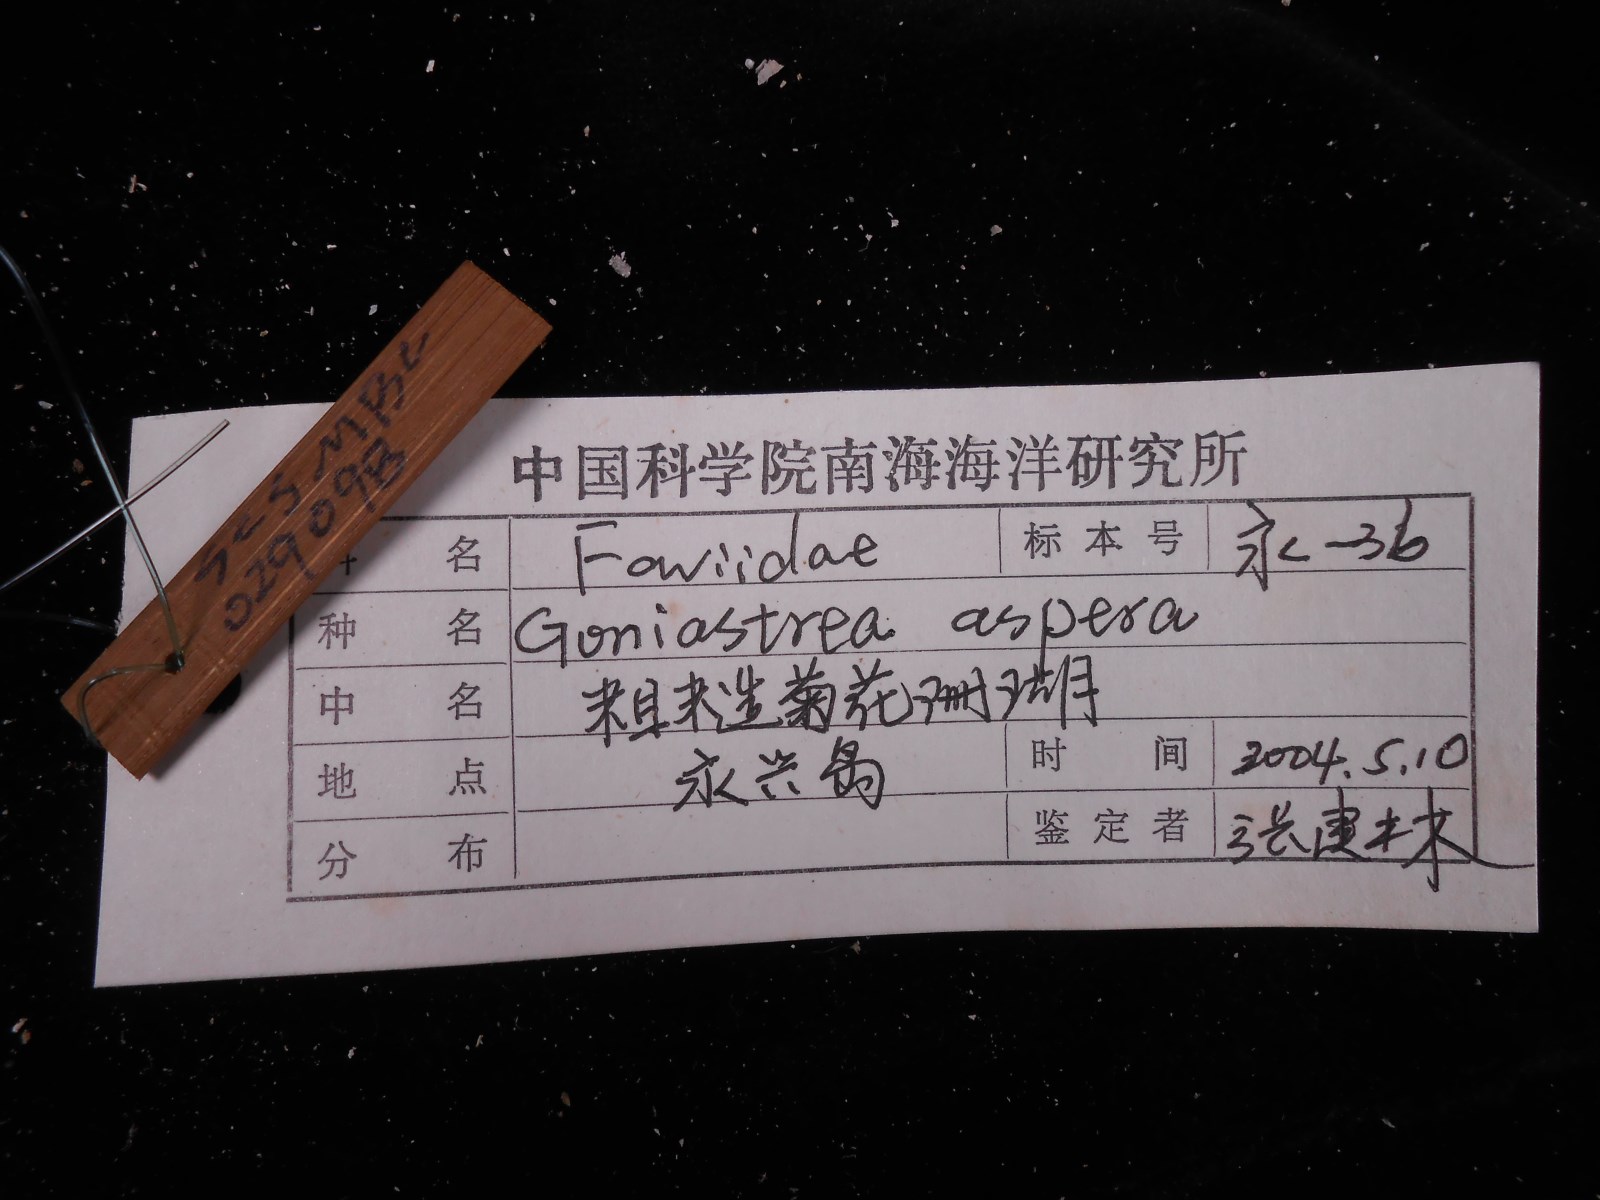 SCSMBC
029098
中国科学院南海海洋研究所
名 Faviidae 标本号 永-36
种名 Goniastrea aspera
中名 粗糙菊花珊瑚
地点 永兴岛 时间 2004.5.10
分布 鉴定者 张